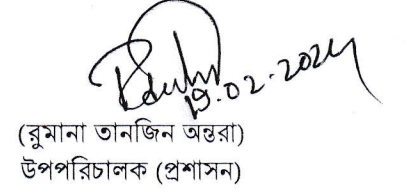 19.02.2024
(রুমানা তানজিন অন্তরা)
উপপরিচালক (প্রশাসন)